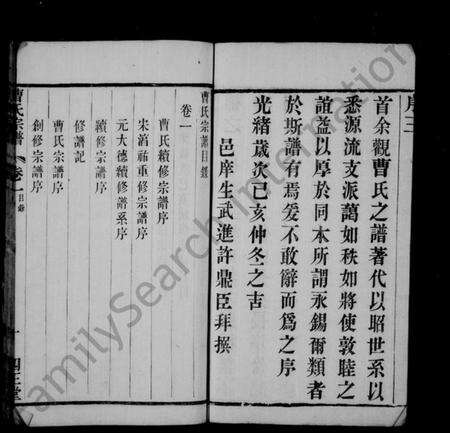 序三
首余觀曹氏之譜著代以昭世系以
悉源流支派藹如秩如將使敦睦之
誼益以厚於同本所謂永錫爾類者
於斯譜有焉爰不敢辭而為之序
光緒歲次己亥仲冬之吉
邑庠生武進許鼎臣拜撰
曹氏宗譜目錄
卷一
曹氏續修宗譜序
宋淳祐重修宗譜序
元大德續修譜系序
續修宗譜序
修譜記
曹氏宗譜序
創修宗譜序
曹氏宗譜 卷一 目錄 一
FamilySearch International